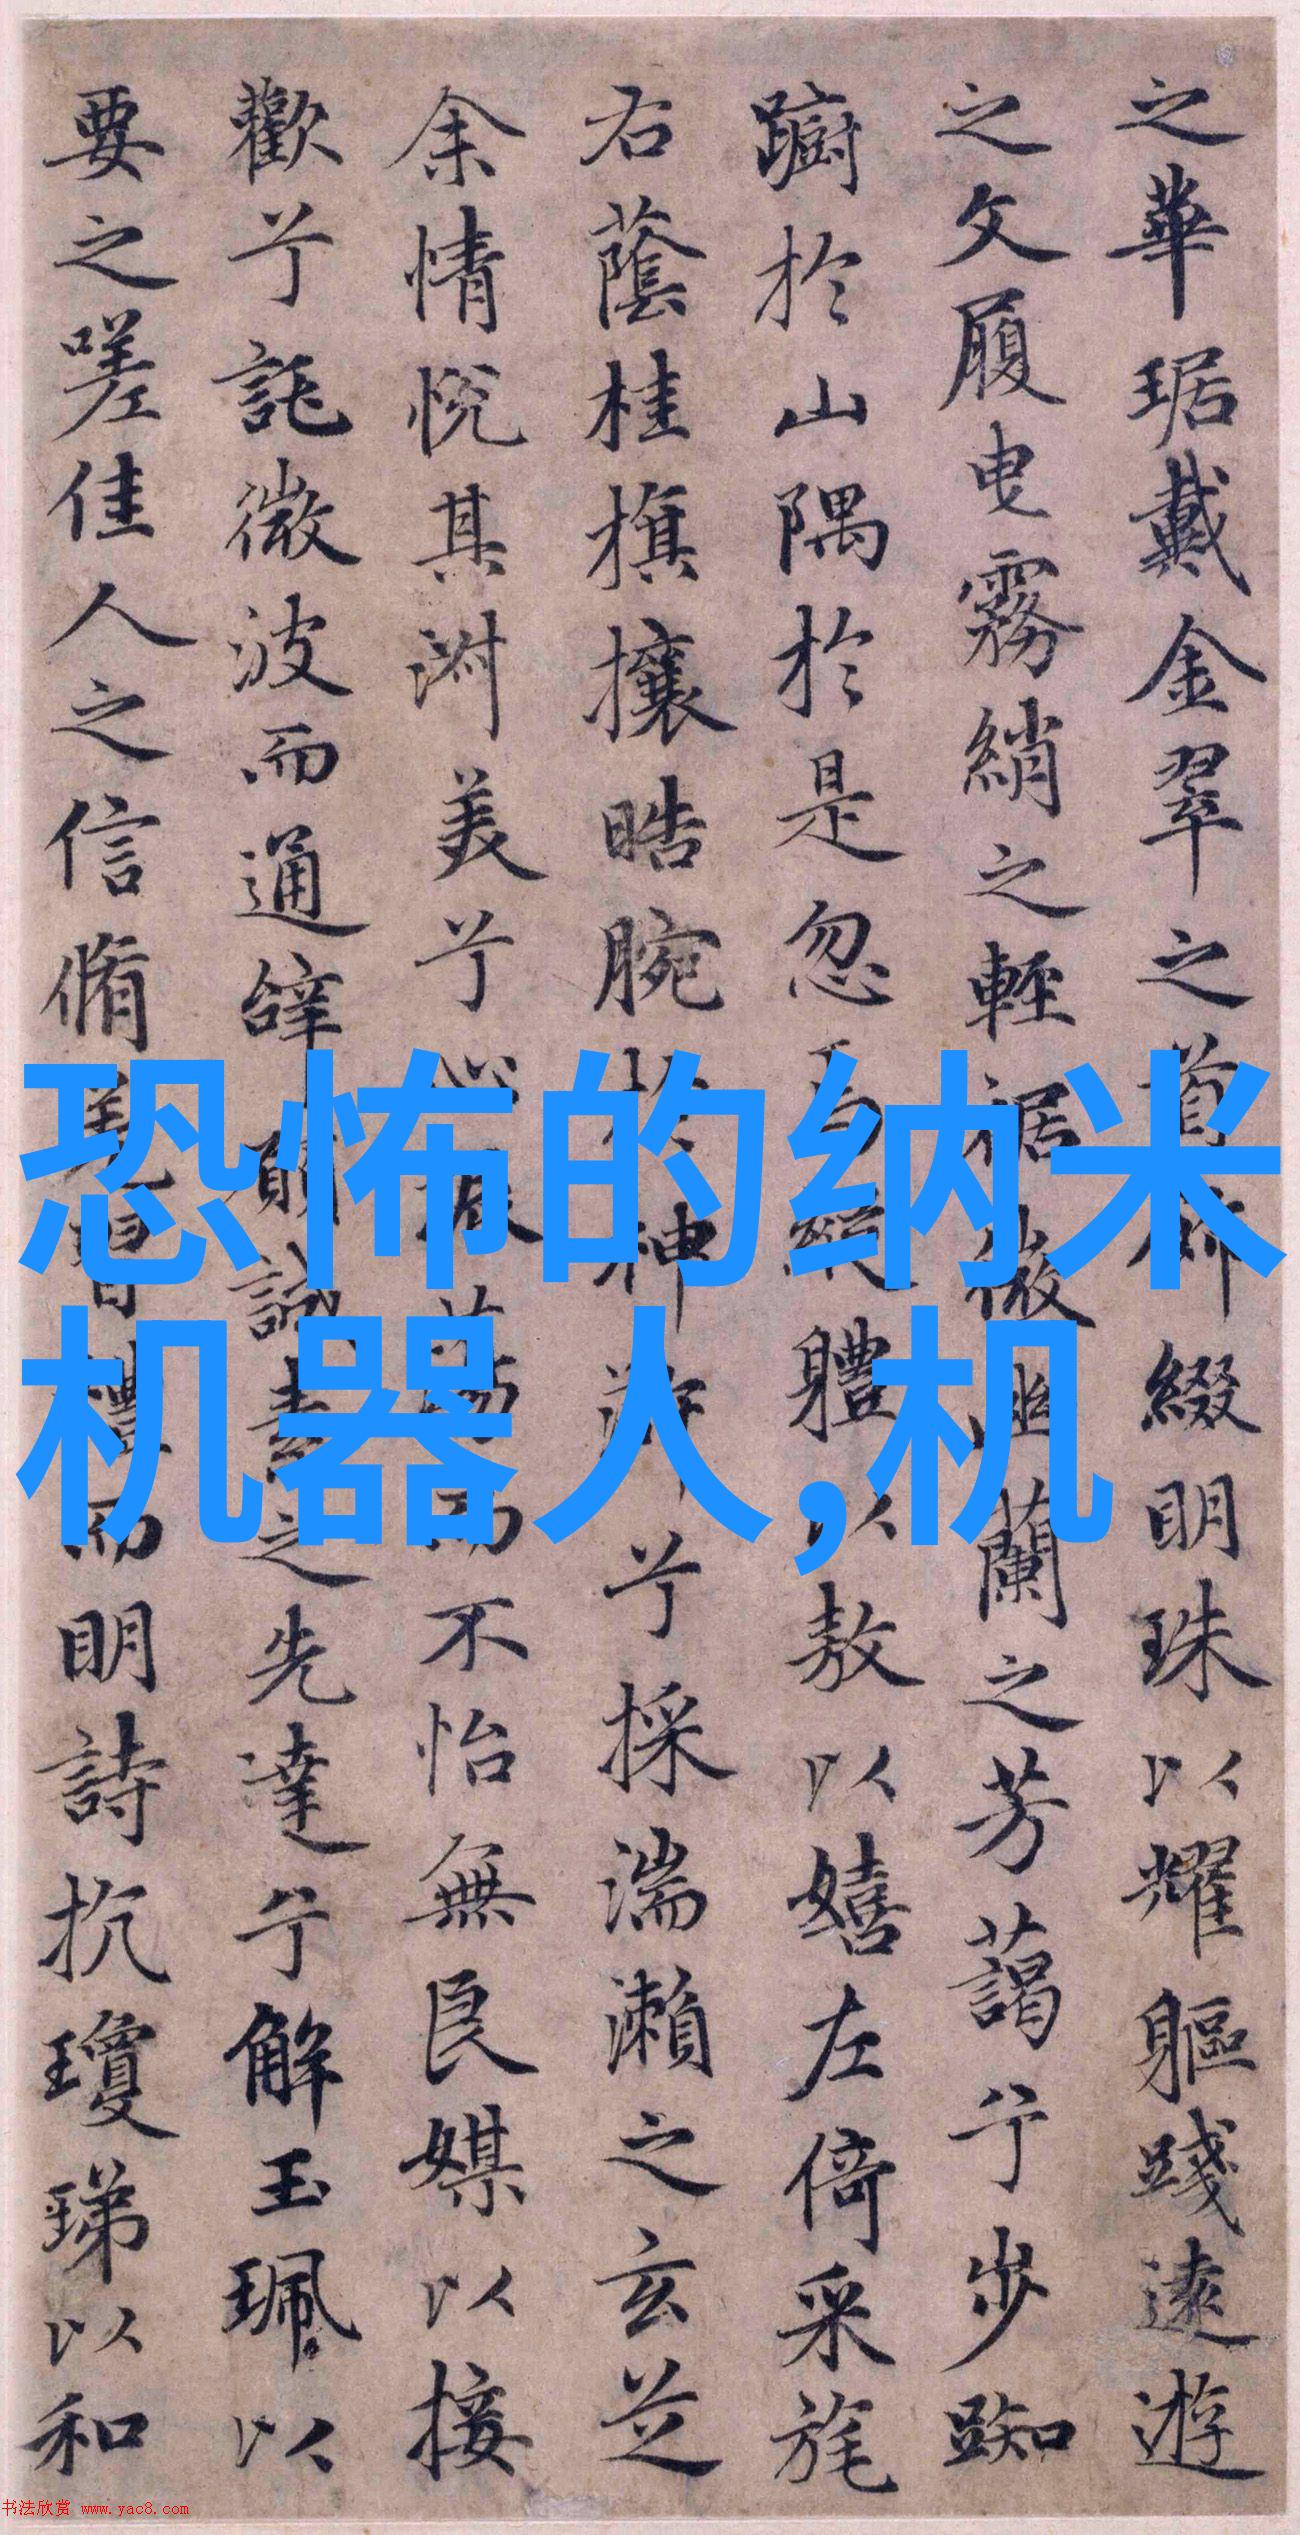 之華琚戴金翠之首飾綴明珠以耀軀踐遠遊
之文履曳霧綃之輕裾微幽蘭之芳藹兮步踟
躕於山隅於是忽焉縱體以敖以嬉左倚采旄
右蔭桂旗攘晧腕於神滸兮採湍瀨之玄芝
余情悅其淑美兮心振蕩而不怡無良媒以接
歡兮託微波而通辭願誠素之先達兮解玉珮以
要之嗟佳人之信脩羌習禮而明詩抗瓊珶以和
恐怖的纳米
机器人,机
书法欣赏 www.yac8.com